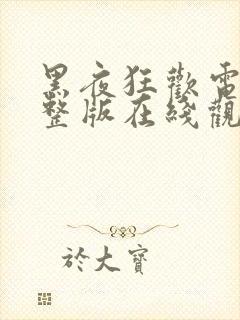 黑夜狂歡電
整版在綫觀
於大寶